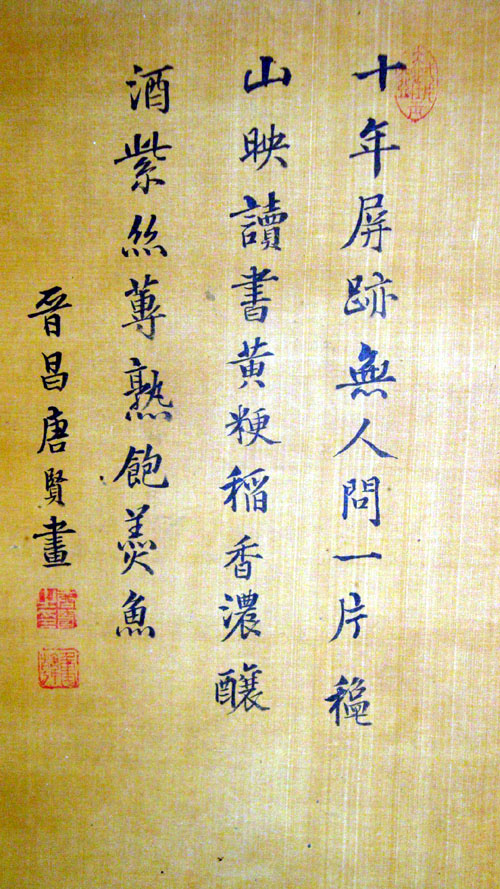 十年屏跡無人問一片穐
山映讀書黄粳稻香濃釀
酒紫絲蓴熟飽羹魚
晉昌唐賢畫